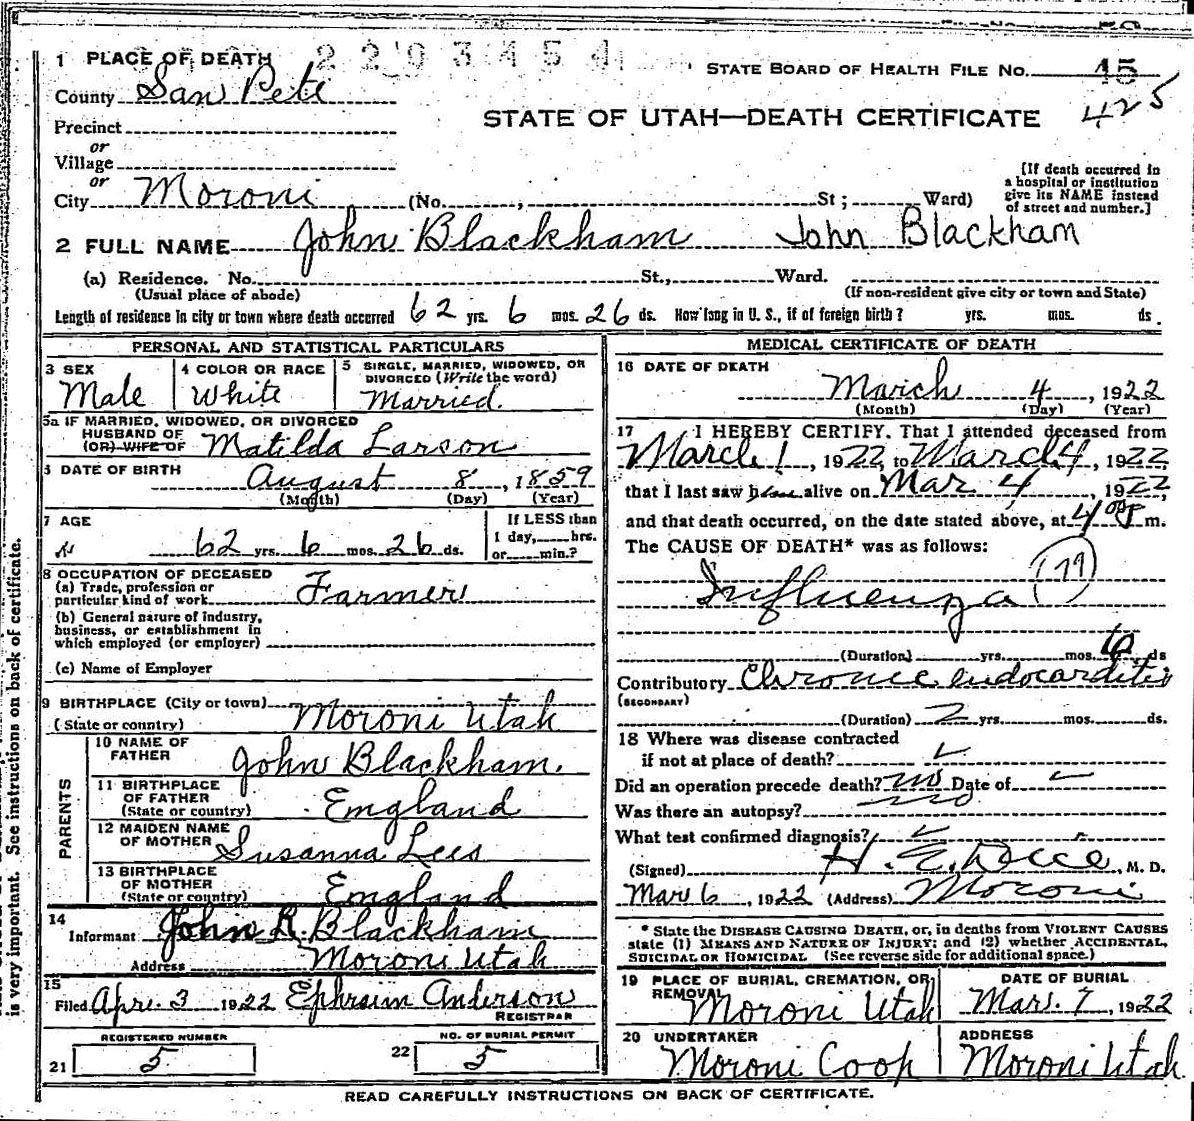 2 2 9 3 4 5 4
1 PLACE OF DEATH
STATE BOARD OF HEALTH FILE NO. 45
County San Pete
425
STATE OF UTAH—DEATH CERTIFICATE
Precinct
or
Village
or
City Moroni (No. , St ; Ward)
[If death occurred in
a hospital or institution
give its NAME instead
of street and number.]
2 FULL NAME John Blackham John Blackham
(a) Residence. No. St., Ward.
(Usual place of abode) (If non-resident give city or town and State)
Length of residence in city or town where death occurred 62 yrs. 6 mos. 26 ds. How long in U. S., if of foreign birth? yrs. mos. ds.
PERSONAL AND STATISTICAL PARTICULARS
3 SEX
Male
4 COLOR OR RACE
White
5 SINGLE, MARRIED, WIDOWED, OR
DIVORCED (Write the word)
Married.
5a IF MARRIED, WIDOWED, OR DIVORCED
HUSBAND OF
(OR) WIFE OF Matilda Larson
6 DATE OF BIRTH
August 8, 1859
(Month) (Day) (Year)
7 AGE
62 yrs. 6 mos. 26 ds.
If LESS than
1 day, hrs.
or min.?
8 OCCUPATION OF DECEASED
(a) Trade, profession or
particular kind of work Farmer
(b) General nature of industry,
business, or establishment in
which employed (or employer)
(c) Name of Employer
9 BIRTHPLACE (City or town)
(State or country) Moroni Utah
PARENTS
10 NAME OF
FATHER John Blackham.
11 BIRTHPLACE
OF FATHER
(State or country) England
12 MAIDEN NAME
OF MOTHER Susanna Lees
13 BIRTHPLACE
OF MOTHER
(State or country) England
14
Informant John R. Blackham
Address Moroni Utah
15
Filed Apr. 3 1922 Ephraim Anderson
REGISTRAR
REGISTERED NUMBER
21 5
NO. OF BURIAL PERMIT
22 5
MEDICAL CERTIFICATE OF DEATH
16 DATE OF DEATH
March 4, 1922
(Month) (Day) (Year)
17 I HEREBY CERTIFY. That I attended deceased from
March 1, 1922, to March 4, 1922,
that I last saw him alive on Mar 4, 1922,
and that death occurred, on the date stated above, at 4 00 p m.
The CAUSE OF DEATH* was as follows:
Influenza (11)
(Duration) yrs. mos. 6 ds
Contributory Chronic endocarditis
(SECONDARY)
(Duration) 2 yrs. mos. ds.
18 Where was disease contracted
if not at place of death? ✓
Did an operation precede death? no Date of ✓
Was there an autopsy? no
What test confirmed diagnosis? ✓
(Signed) H. E., M. D.
Mar 6, 1922 (Address) Moroni
* State the DISEASE CAUSING DEATH, or, in deaths from VIOLENT CAUSES
state (1) MEANS AND NATURE OF INJURY; and (2) whether ACCIDENTAL,
SUICIDAL OR HOMICIDAL (See reverse side for additional space.)
19 PLACE OF BURIAL, CREMATION, OR
REMOVAL
Moroni Utah
DATE OF BURIAL
Mar. 7, 1922
20 UNDERTAKER
Moroni Coop
ADDRESS
Moroni Utah.
READ CAREFULLY INSTRUCTIONS ON BACK OF CERTIFICATE.
is very important. See instructions on back of certificate.